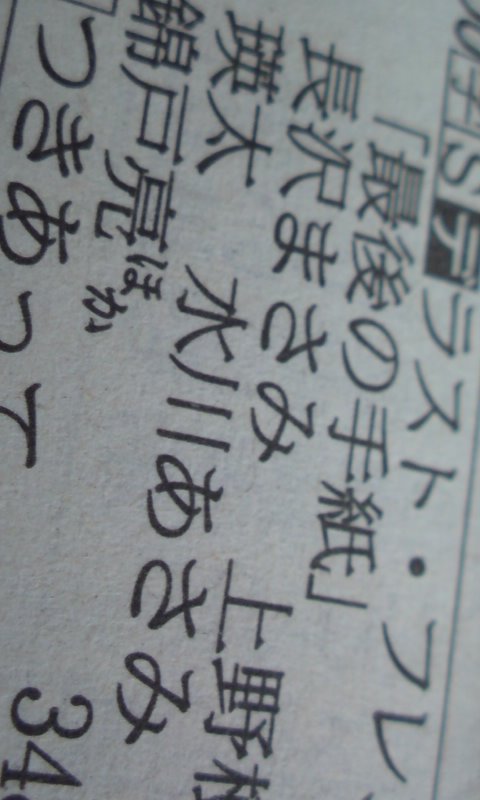 00字Sデラスト・フレ
「最後の手紙」
長沢まさみ 上野樹
瑛太 水川あさみ
錦戸亮ほか
つきあって 34